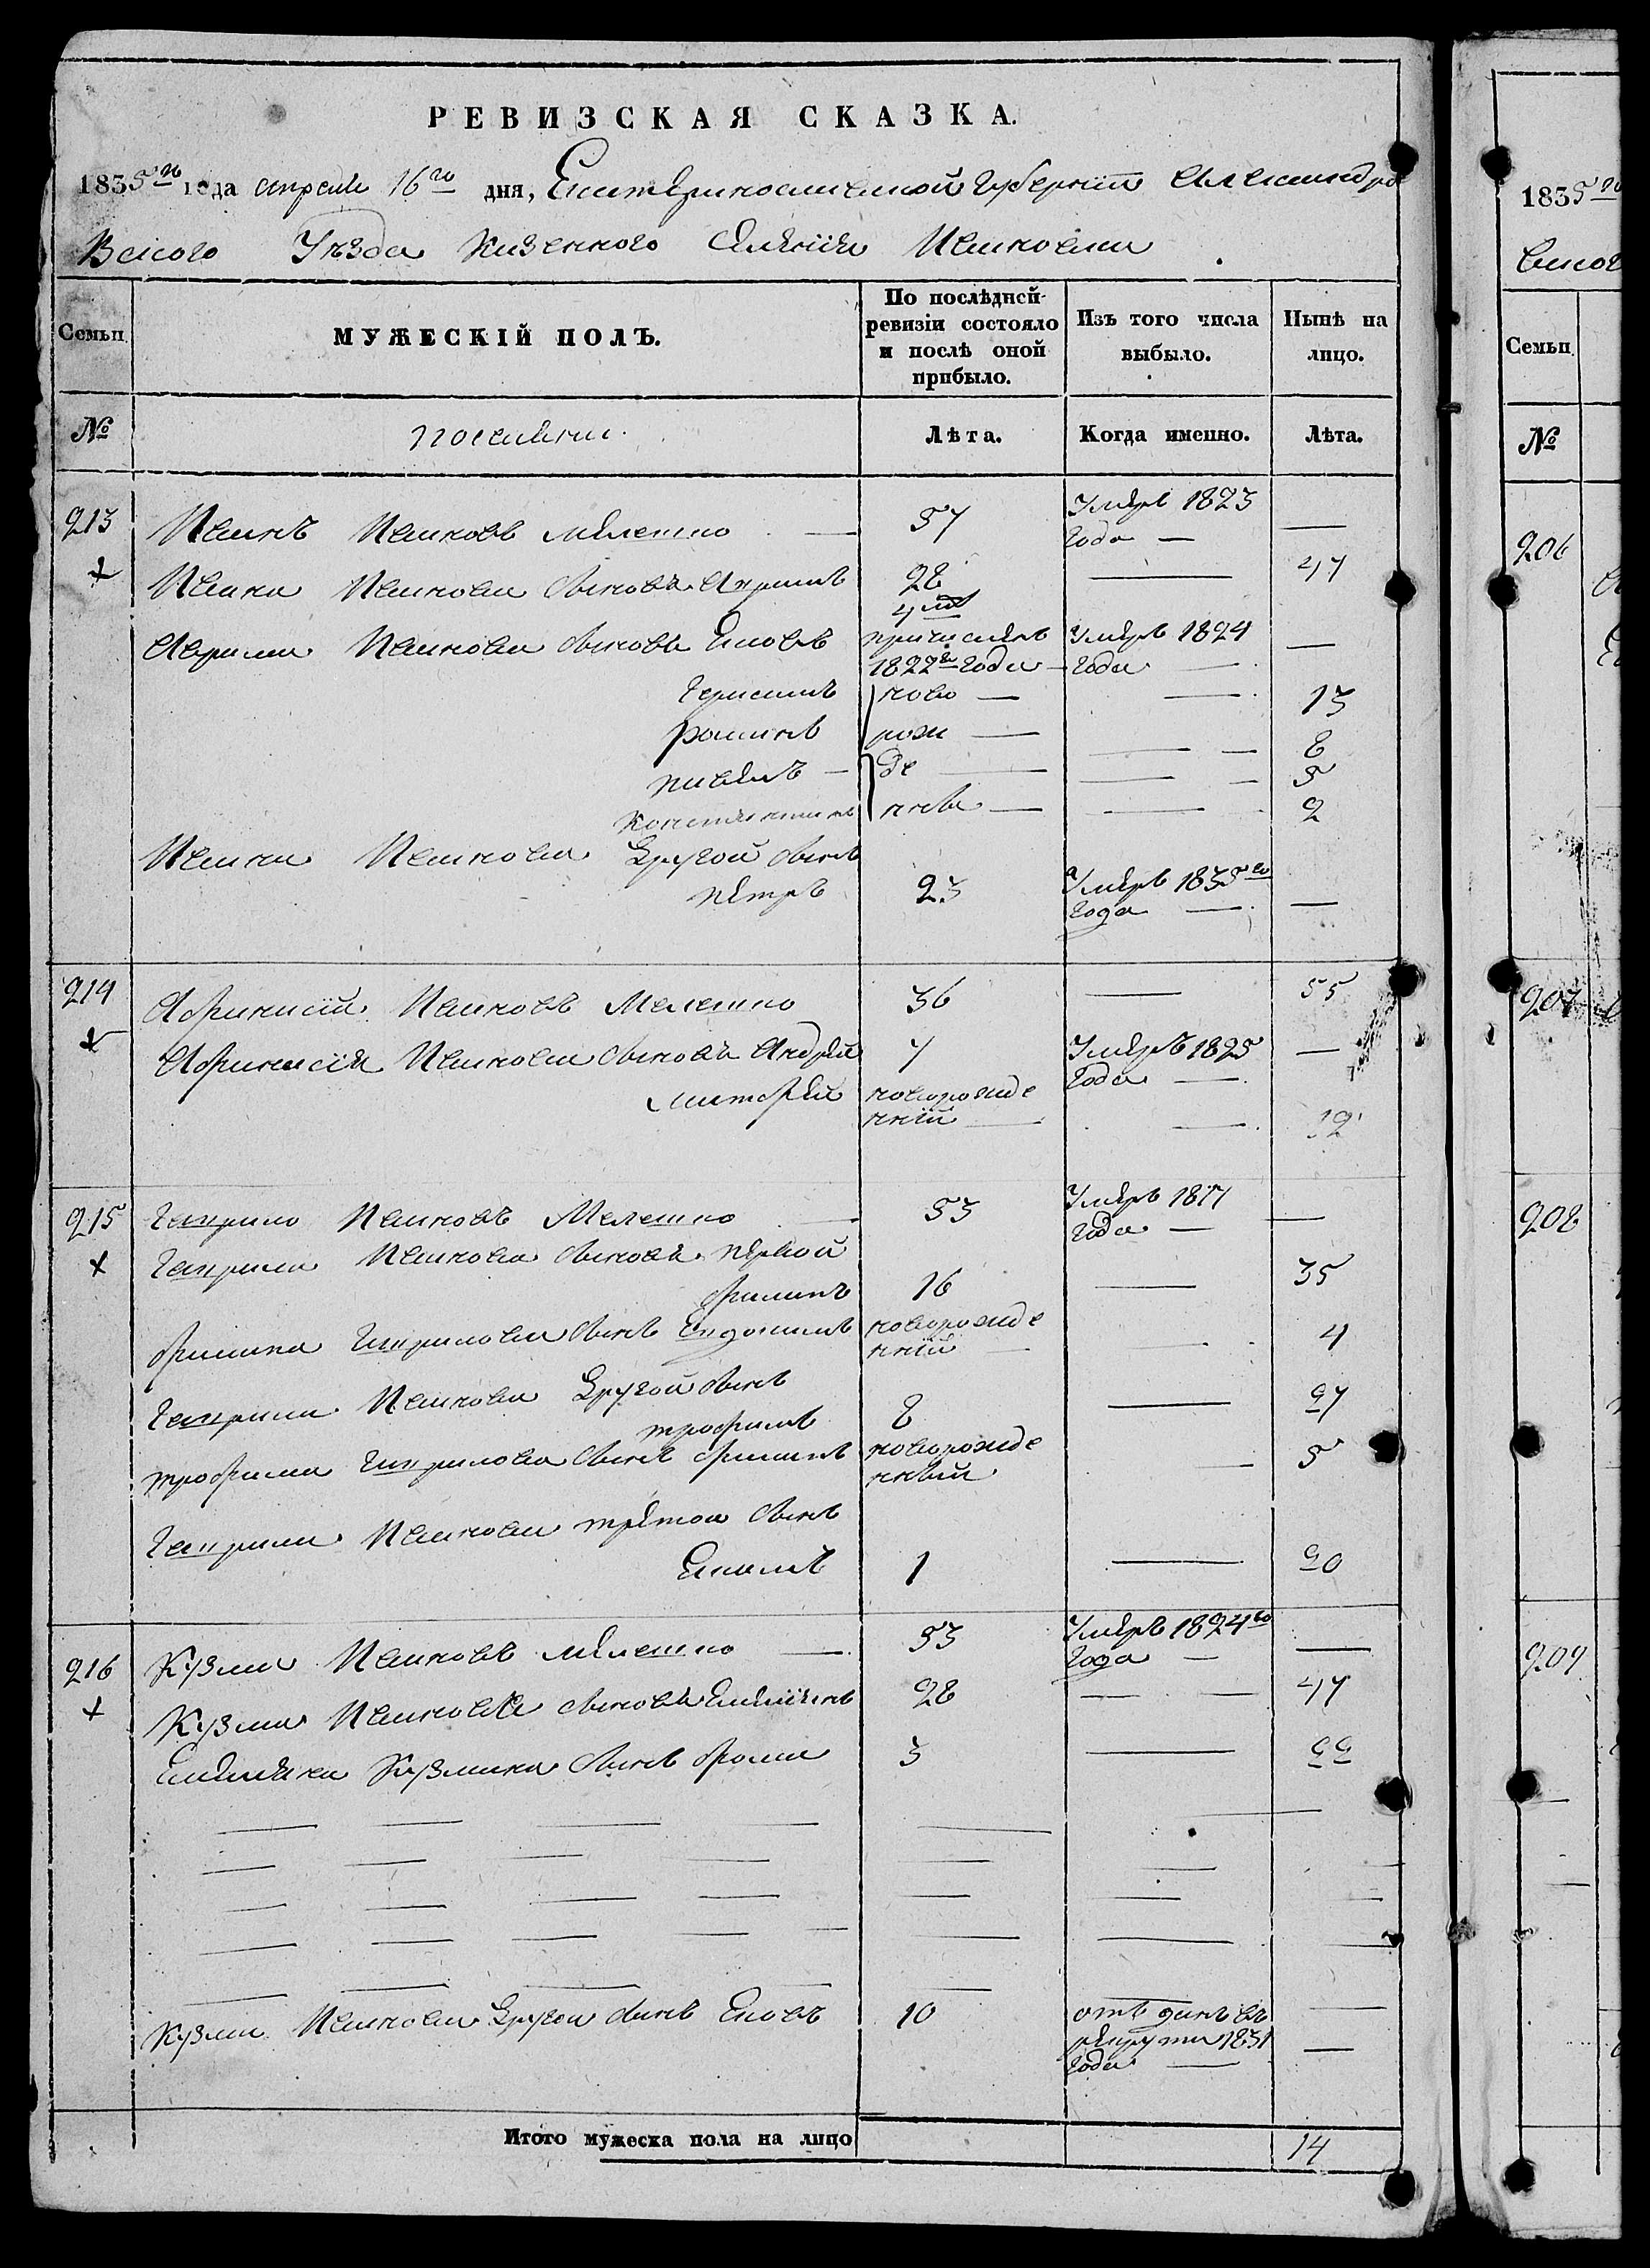 РЕВИЗСКАЯ СКАЗКА.
1835го года апреля 16го дня, Екатеринославской Губернiи Александро
Вского Уѣзда Казенного Селенiя Ивановки
Семьи
МУЖЕСКІЙ ПОЛЪ.
По послѣдней ревизіи состояло и послѣ оной прибыло.
Изъ того числа выбыло.
Нынѣ на лицо.
№
поселяни.
Лѣта.
Когда именно.
Лѣта.
213 Иванъ Ивановъ Мелешко — 57 Умеръ 1823 года — —
Ивана Иванова сыновъя 28 — 47
Иванова сыновья Яковъ причисленъ 1822го года Умеръ 1824 года —
Герасимъ ново — — 13
Романъ рож — — 8
Павелъ — де — — 5
Константинъ нныя — — 2
Ивана Иванова Другой сынъ
Петръ 23 Умеръ 1835го года — —
214 Афанасiй Ивановъ Мелешко 36 — 55
Афанасiя Иванова сыновья Андрей 7 Умеръ 1825 года — —
новорожде нный — — 12
215 Гаврило Ивановъ Мелешко — 53 Умеръ 1817 года — —
Гаврила Иванова сыновья первой
Филипъ 16 — 35
Филипа Гаврилова сынъ Евдокимъ новорожде нный — — 4
Гаврила Иванова Другой сынъ
трофимъ 8 — 27
трофима Гаврилова сынъ новорожде нный — 5
Гаврила Иванова третой сынъ
Екимъ 1 — 20
216 Кузма Ивановъ Мелешко — 53 Умеръ 1824го года — —
Кузма Иванова сыновья Емельянъ 28 — — 47
Емельяна Кузмина сынъ фома 3 — 22
Кузма Иванова Другой сынъ Яковъ 10 отъданъ въ рекруты 1831 года — —
Итого мужеска пола на лицо 14
1835го
Вског
Семьи
№
206
207
208
209